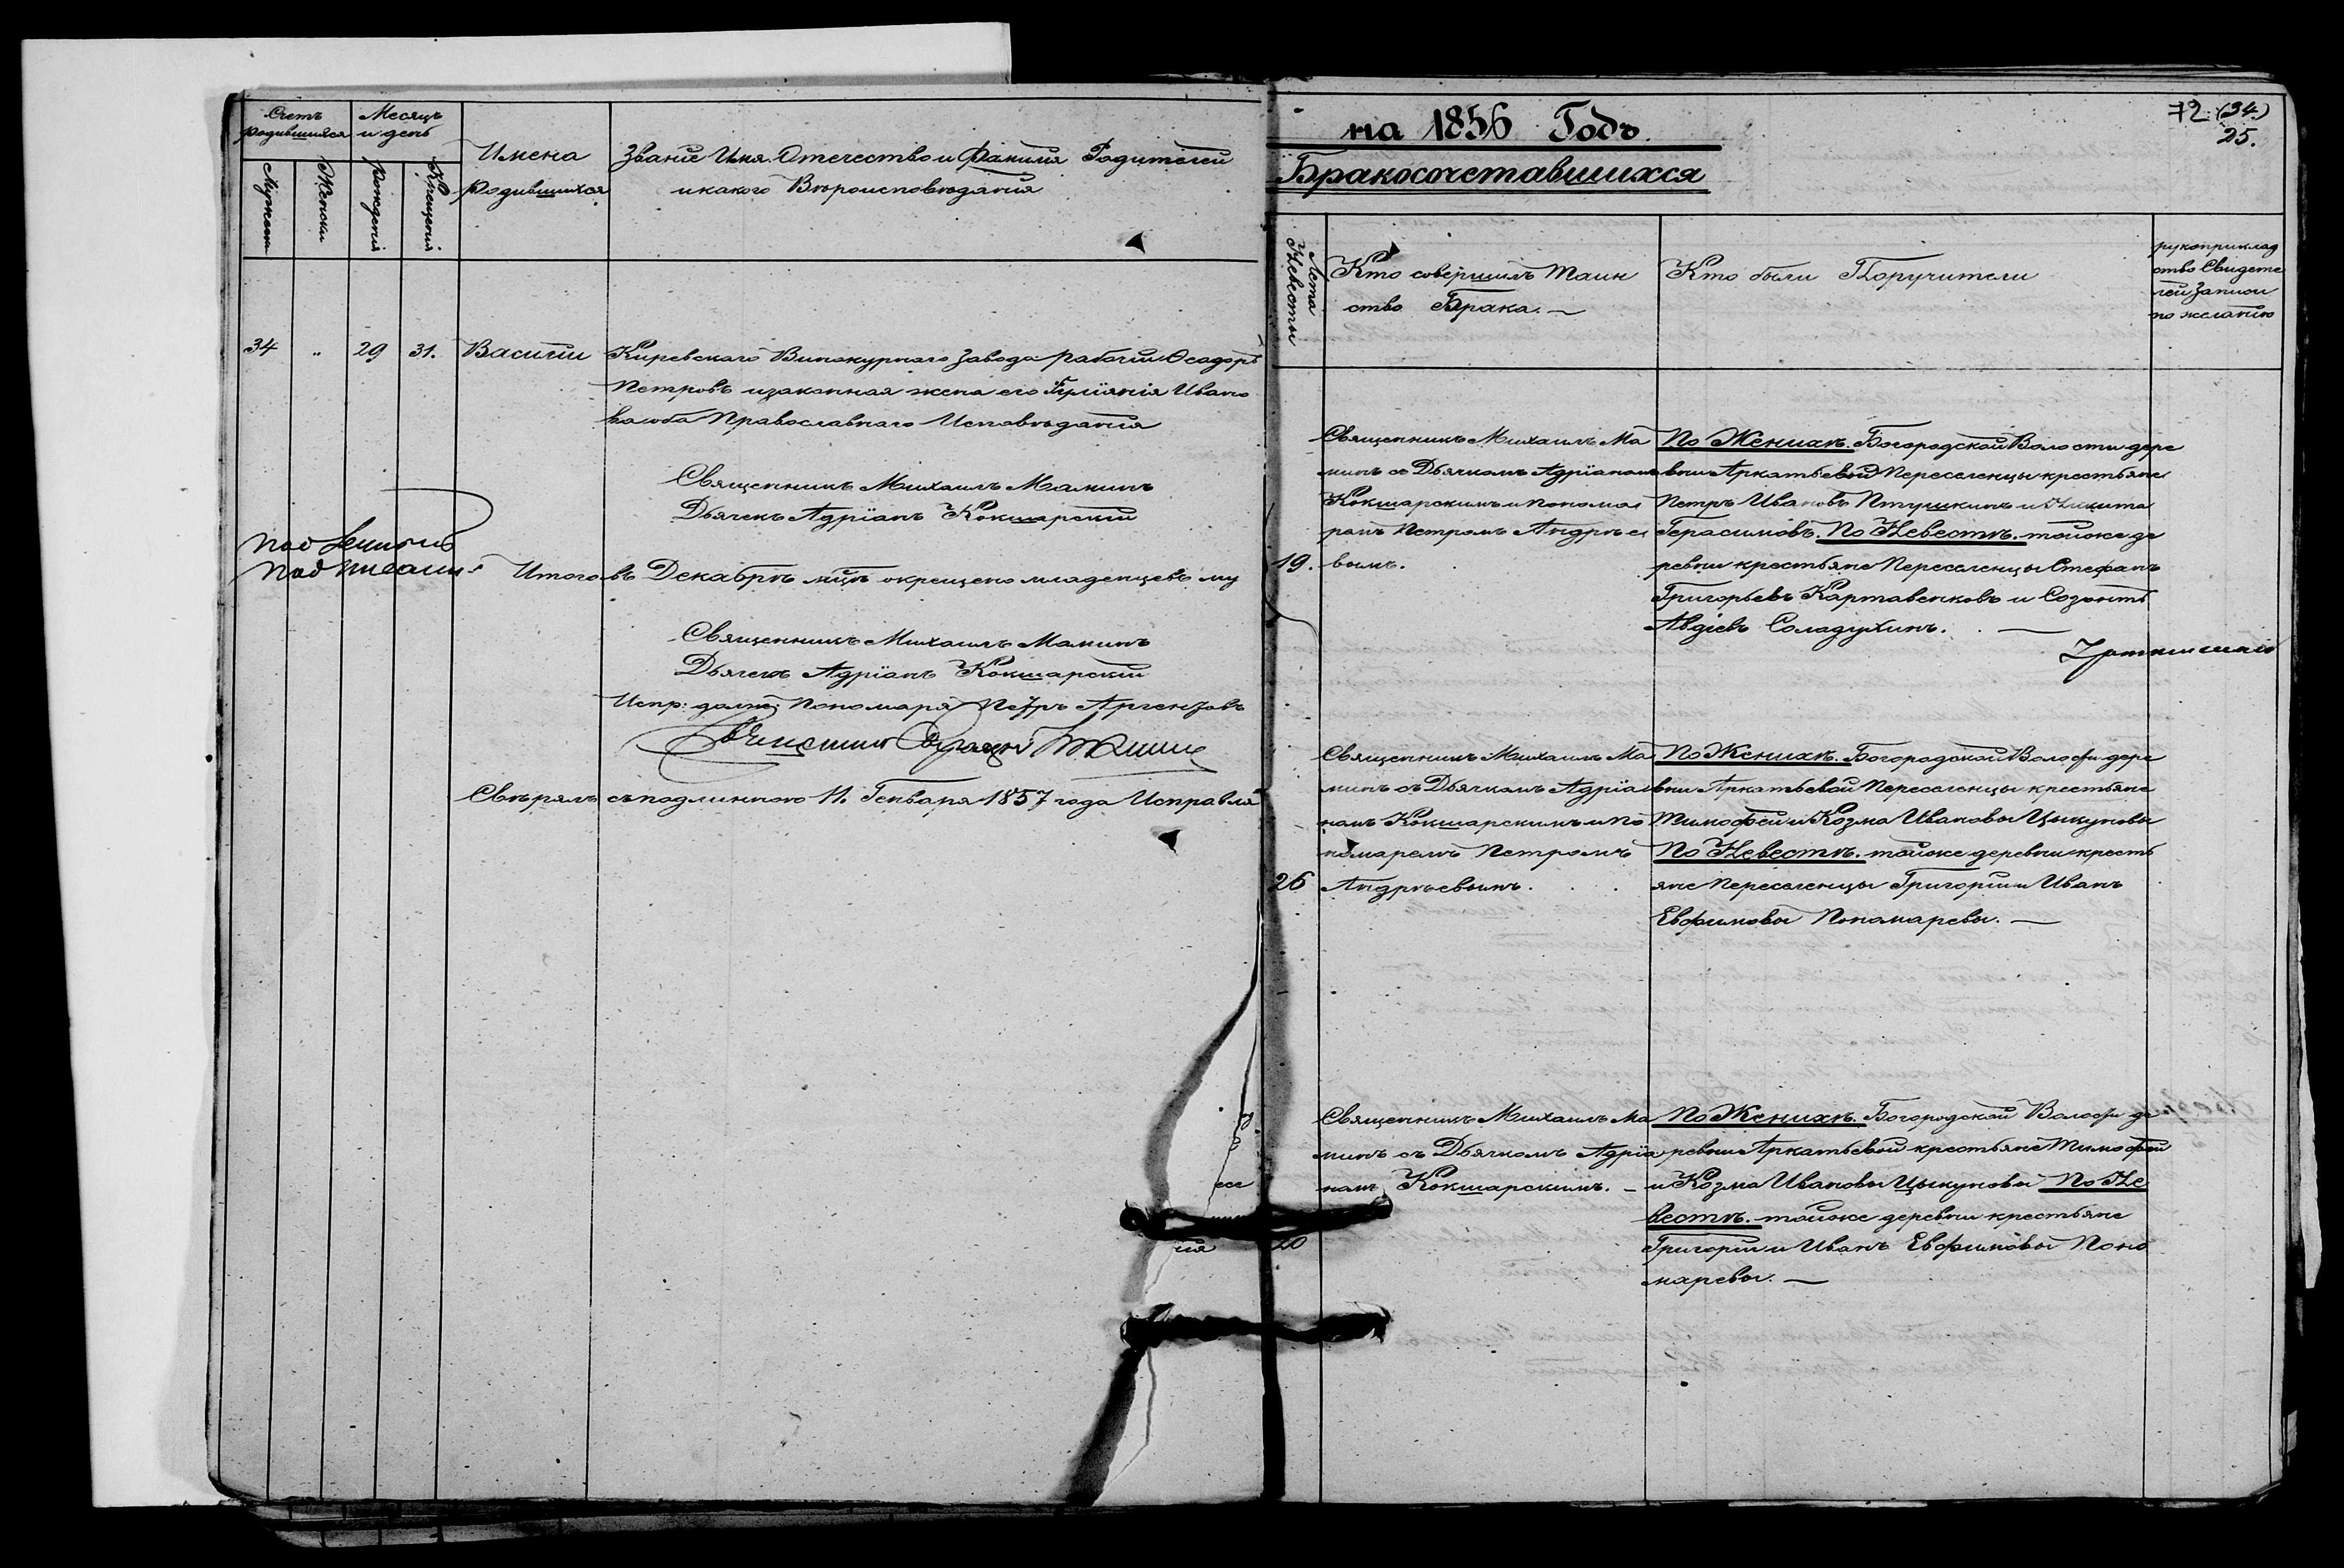 Счетъ родившихся
Месяцъ и день
Мужеска
Женски
Рожденія
Крещенія
Имена
родившихся
Званіе Имя Отечество и Фамилія Родителей
и какого Вѣроисповѣданія
34 „ 29 31. Василій Киревскаго Винокурнаго завода рабочій Ѳеадоръ
Петровъ и законная жена его Іуліянія Ивано
ва оба Православнаго Исповѣданія
Священникъ Михаилъ Маминъ
Дьячекъ Адріанъ Кокшарскій
Итого въ Декабрѣ мцѣ окрещено младенцевъ му
Священникъ Михаилъ Маминъ
Дьячекъ Адріанъ Кокшарскій
Испр: долж: Пономаря Петръ
Свѣрялъ съ подлинного 11. Генваря 1857 года Исправля
72 (34)
25.
на 1856 Годъ.
Бракосочетавшихся
Лета Невесты
Кто совершилъ Таин
ство Брака. —
Кто были Поручители
рукоприклад
ство Свидете
лей записи
по желанію
Священникъ Михаилъ Ма
минъ съ Дьячкомъ Адріаномъ
Кокшарскимъ и понома
ремъ Петромъ Андрѣе
19. вымъ.
По Женихѣ. Богородской Волости дере
вни Аркатьевой Переселенцы крестьяне
Петръ Ивановъ Птушкинъ и Никита
Герасимовъ. По Невестѣ. тойже де
ревни крестьяне Переселенцы Стефанъ
Григорьевъ Картавенковъ и Созонтъ
Авдіевъ Соладухинъ. —
Священникъ Михаилъ Ма
минъ съ Дьячкомъ Адріа
номъ Кокшарскимъ и по
номаремъ Петромъ
26 Андрѣевымъ.
По Женихѣ. Богородской Волости дере
вни Аркатьевой Переселенцы крестьяне
Тимофей и Козма Ивановы Цыкуновы
По Невестѣ. тойже деревни кресть
яне Переселенцы Григорій и Иванъ
Евфимовы Пономаревы. —
Священникъ Михаилъ Ма
минъ съ Дьячкомъ Адріа
номъ Кокшарскимъ. —
20
По Женихѣ. Богородской Волости де
ревни Аркатьевой крестьяне Тимофей
и Козма Ивановы Цыкуновы По Не
вестѣ. тойже деревни крестьяне
Григорій и Иванъ Евфимовы Поно
маревы. —